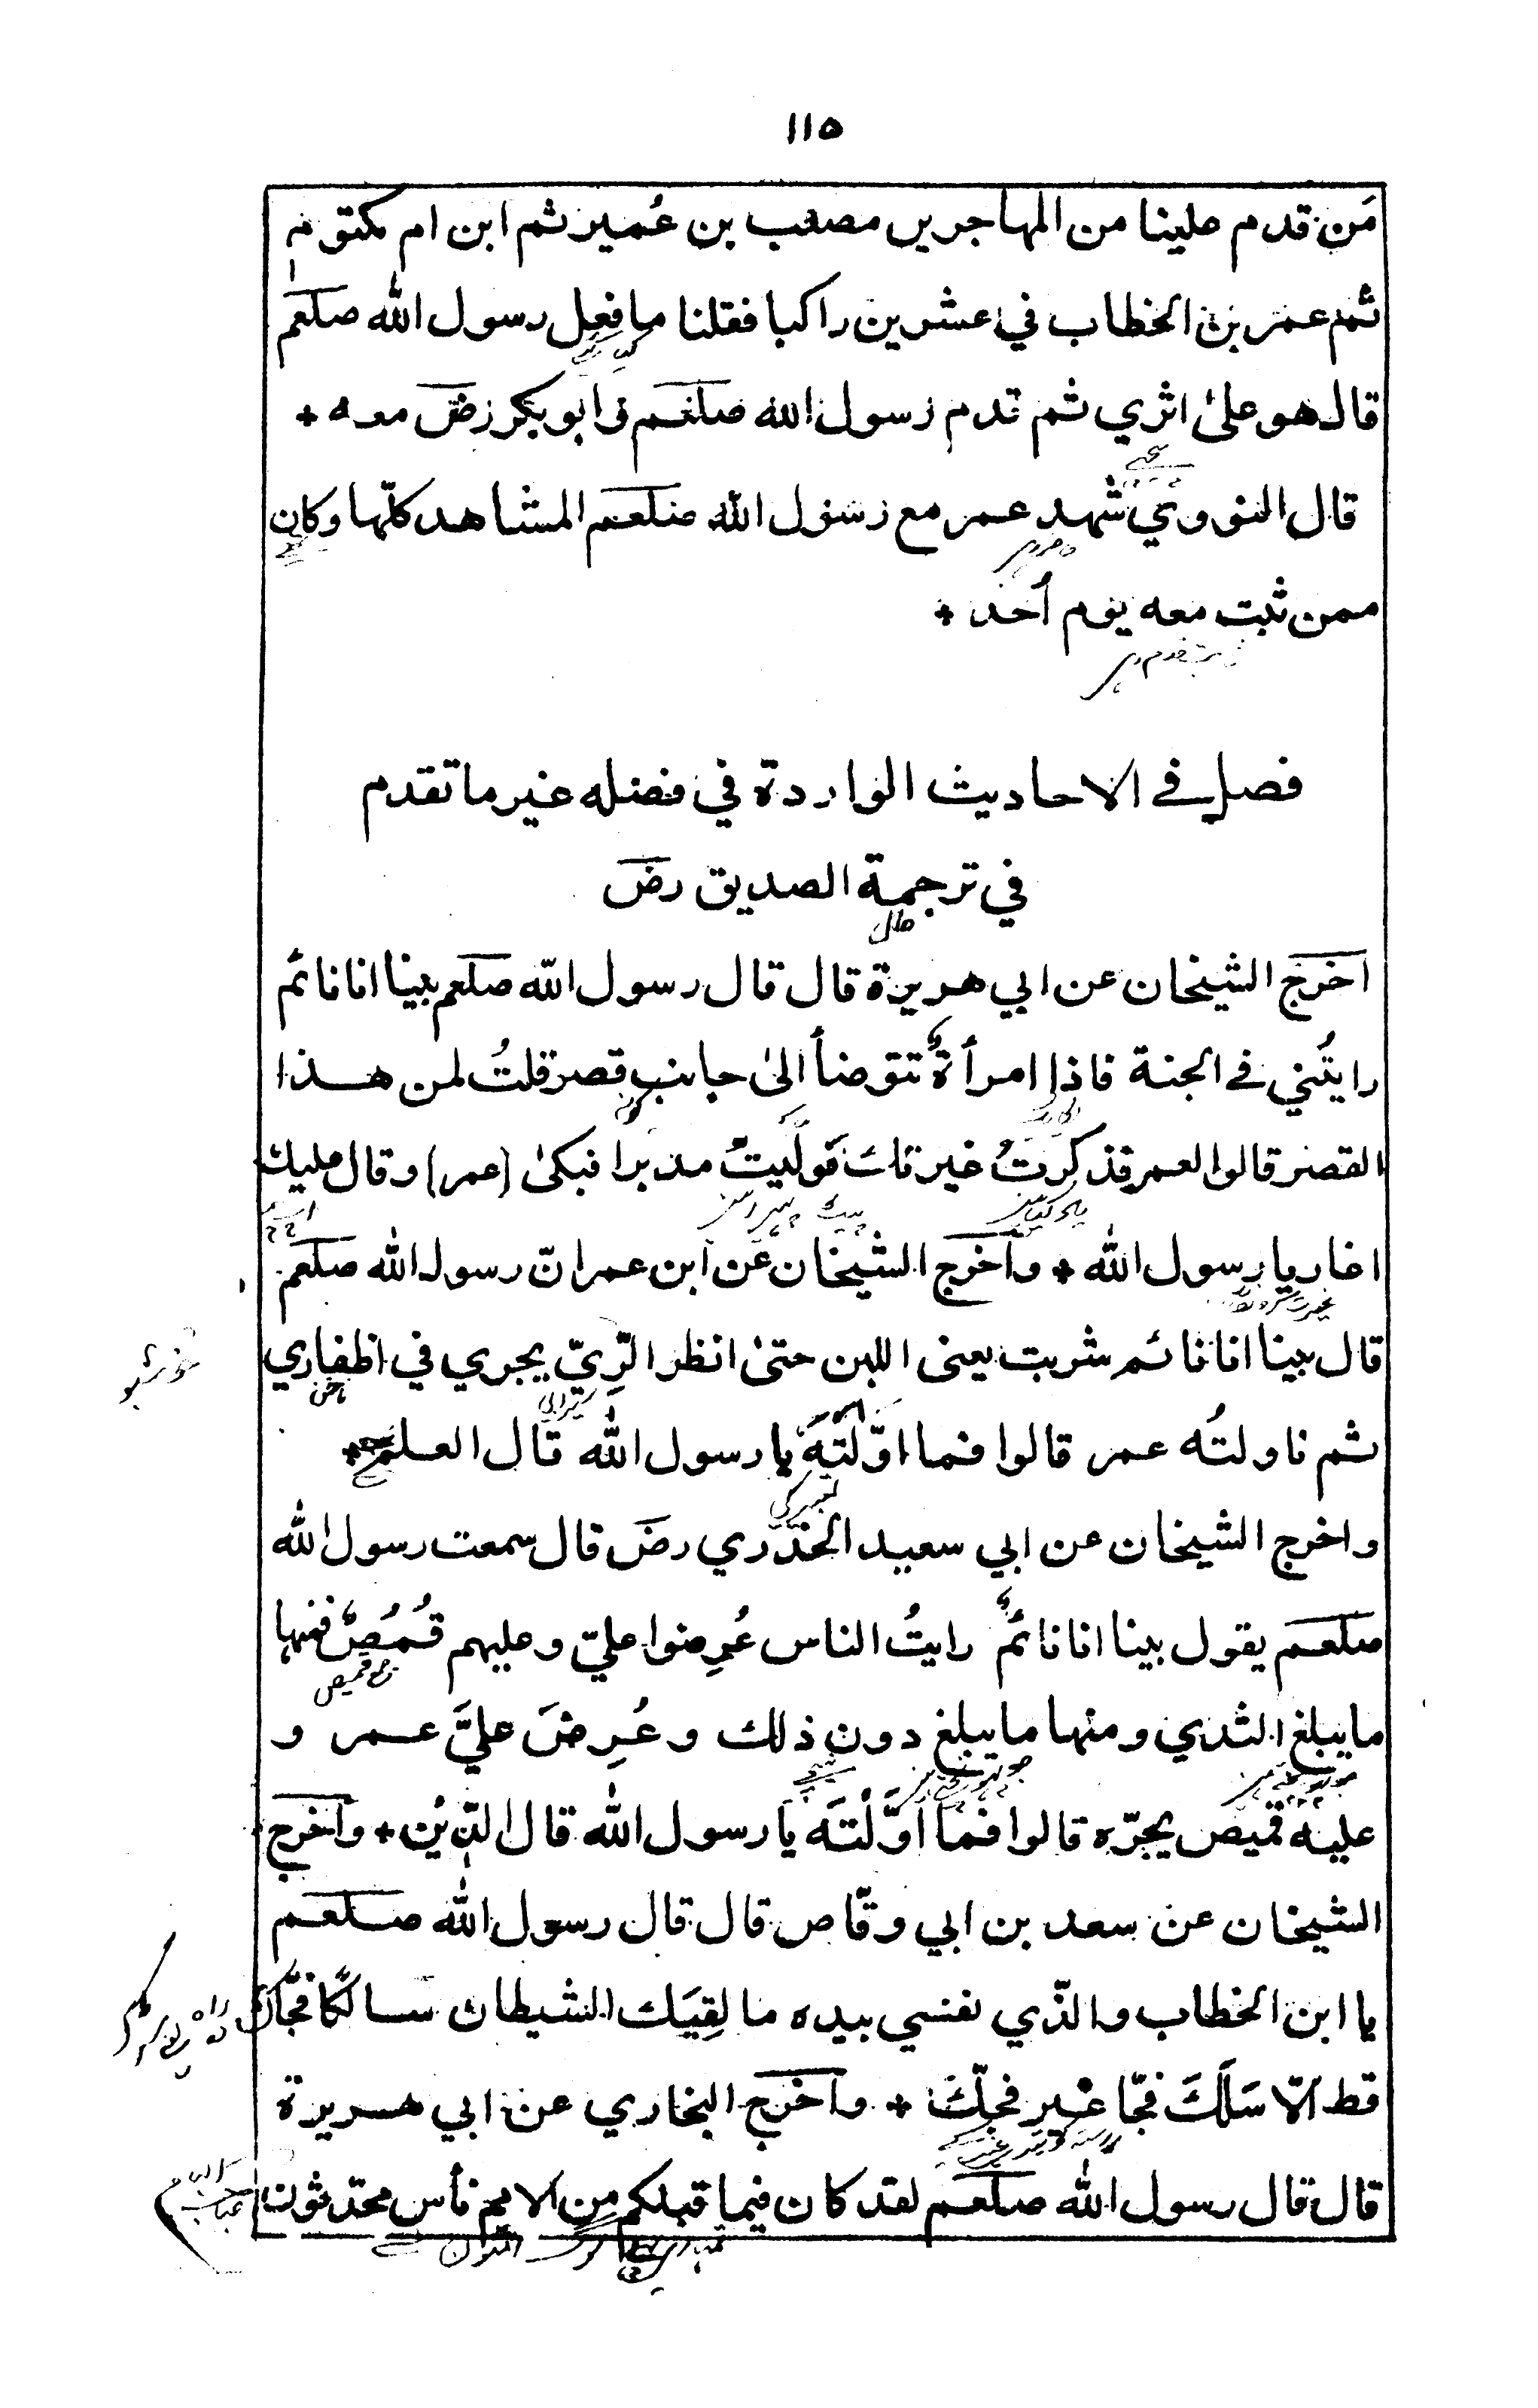 ١١٥
مَن قدم علينا من المهاجرين مصعب بن عُمير ثم ابن ام مكتوم
ثم عمر بن الخطاب في عشرين راكبا فقلنا ما فعل رسول الله صلعم
قال هو علىٰ اثري ثم قدم رسول الله صلعم و ابو بكر رض معه +
قال النووي شهد عمر مع رسول الله صلعم المشاهد كلّها و كان
ممن ثبت معه يوم اُحد +
فصل في الاحاديث الواردة في فضله غير ما تقدم
في ترجمة الصديق رض
حال
اخرج الشيخان عن ابي هريرة قال قال رسول الله صلعم بينا انا نائم
رايتُني في الجنة فاذا امرأةٌ تتوضأ الىٰ جانب قصر قلتُ لمن هذا
القصر قالوا لعمر فذكرتُ غيرتك فولّيتُ مدبرا فبكىٰ (عمر) و قال عليك
اغار يا رسول الله + و اخرج الشيخان عن ابن عمر انّ رسول الله صلعم
قال بينا انا نائم شربت يعنى اللبن حتىٰ انظر الرِّيّ يجري في اظفاري
ناخن
ثم ناولتُه عمر قالوا فما اوّلتَه يا رسول الله قال العلم +
تعبير كي
و اخرج الشيخان عن ابي سعيد الخدري رض قال سمعت رسول الله
صلعم يقول بينا انا نائمٌ رايتُ الناس عُرِضوا عليّ و عليهم قُمُصٌ فمنها
جمع قميص
ما يبلغ الثدي و منها ما يبلغ دون ذلك و عُرِضَ عليَّ عمر و
عليه قميص يجرّه قالوا فما اَوَّلْتَه يا رسول الله قال الدّين + و اخرج
الشيخان عن سعد بن ابي وقّاص قال قال رسول الله صلعم
يا ابن الخطاب و الّذي نفسي بيده ما لقِيَك الشيطان سالكًا فجّا
قط الّا سَلَكَ فجّا غير فجّك + و اخرج البخاري عن ابي هريرة
قال قال رسول الله صلعم لقد كان فيما قبلكم من الامم ناس محدّثون